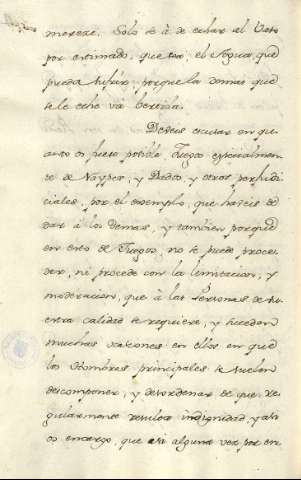 merezc. Solo se à de echar el Voto
por estimado, que sea el Agua, que
pueda sufrir porque la demas que
se le eche va perdida.
Debeis escusar en qu
anto os fuere posible Juegos especialmen
te de Naypes, y Dados, y otros perjudi
ciales, por el exemplo, que haveis de
dar à los demas, y tambien porque
en esto de Juegos, no se puede proce
der, ni procede con la limitacion, y
moderacion, que à las Personas de bu
estra calidad se requiere, y suceden
muchas ocasiones en ellos en que
los Hombres principales se suelen
descomponer, y desordenar de que re
gularmente resulta indignidad, y ass
os encargo, que si alguna vez por en